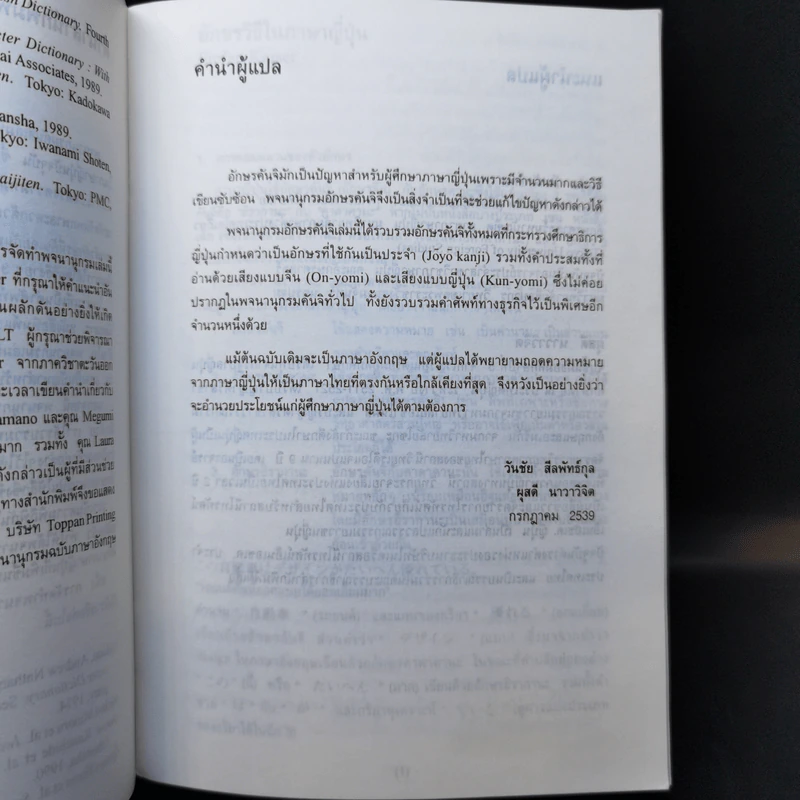 an Dictionary, Fourth
ter Dictionary : With
ai Associates, 1989.
en. Tokyo: Kadokawa
ansha, 1989.
kyo: Iwanami Shoten,
aijiten. Tokyo: PMC,
รจัดทำพจนานุกรมเล่มนี้
r ที่กรุณาให้คำแนะนำอัน
นผลักดันอย่างยิ่งให้เกิด
LT ผู้กรุณาช่วยพิจารณา
r จากภาควิชาตะวันออก
ะเวลาเขียนคำนำเกี่ยวกับ
amano และคุณ Megumi
มาก รวมทั้ง คุณ Laurni
ดังกล่าวเป็นผู้ที่มีส่วนช่วย
ทางสำนักพิมพ์จึงขอแสดง
บริษัท Toppan Printing
จนานุกรมฉบับภาษาอังกฤษ
คำนำผู้แปล
อักษรคันจิมักเป็นปัญหาสำหรับผู้ศึกษาภาษาญี่ปุ่นเพราะมีจำนวนมากและวิธี
เขียนซับซ้อน พจนานุกรมอักษรคันจิจึงเป็นสิ่งจำเป็นที่จะช่วยแก้ไขปัญหาดังกล่าวได้
พจนานุกรมอักษรคันจิเล่มนี้ได้รวบรวมอักษรคันจิทั้งหมดที่กระทรวงศึกษาธิการ
ญี่ปุ่นกำหนดว่าเป็นอักษรที่ใช้กันเป็นประจำ (Jōyō kanji) รวมทั้งคำประสมทั้งที่
อ่านด้วยเสียงแบบจีน (On-yomi) และเสียงแบบญี่ปุ่น (Kun-yomi) ซึ่งไม่ค่อย
ปรากฏในพจนานุกรมคันจิทั่วไป ทั้งยังรวบรวมคำศัพท์ทางธุรกิจไว้เป็นพิเศษอีก
จำนวนหนึ่งด้วย
แม้ต้นฉบับเดิมจะเป็นภาษาอังกฤษ แต่ผู้แปลได้พยายามถอดความหมาย
จากภาษาญี่ปุ่นให้เป็นภาษาไทยที่ตรงกันหรือใกล้เคียงที่สุด จึงหวังเป็นอย่างยิ่งว่า
จะอำนวยประโยชน์แก่ผู้ศึกษาภาษาญี่ปุ่นได้ตามต้องการ
วันชัย สีลพัทธ์กุล
ผุสดี นาวาวิจิต
กรกฎาคม 2539